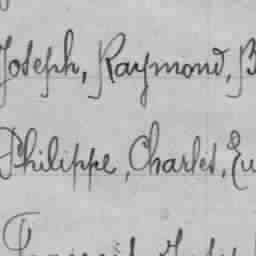 Joseph, Raymond, B
Philippe, Charles, Eu